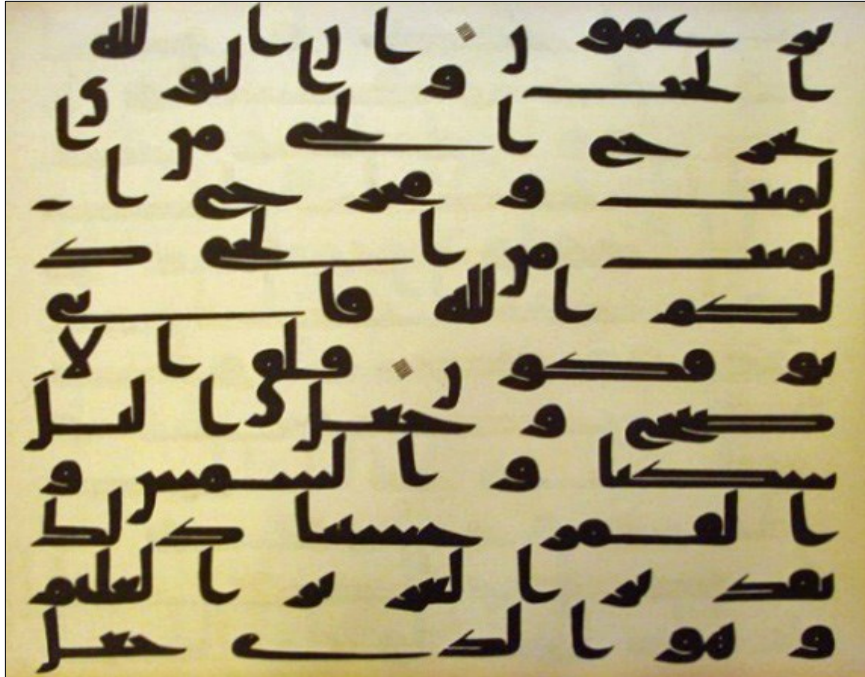 تزعمون ان الله
الحب و النوى
يخرج الحى من ا
لميت و مخرج ا
لميت من الحى ذ
لكم الله فانى
توفكون فلق الا
صبح و جعل اليل
سكنا و الشمس و
القمر حسبنا ذلك
تقدير العزيز العليم
و هو الذى جعل